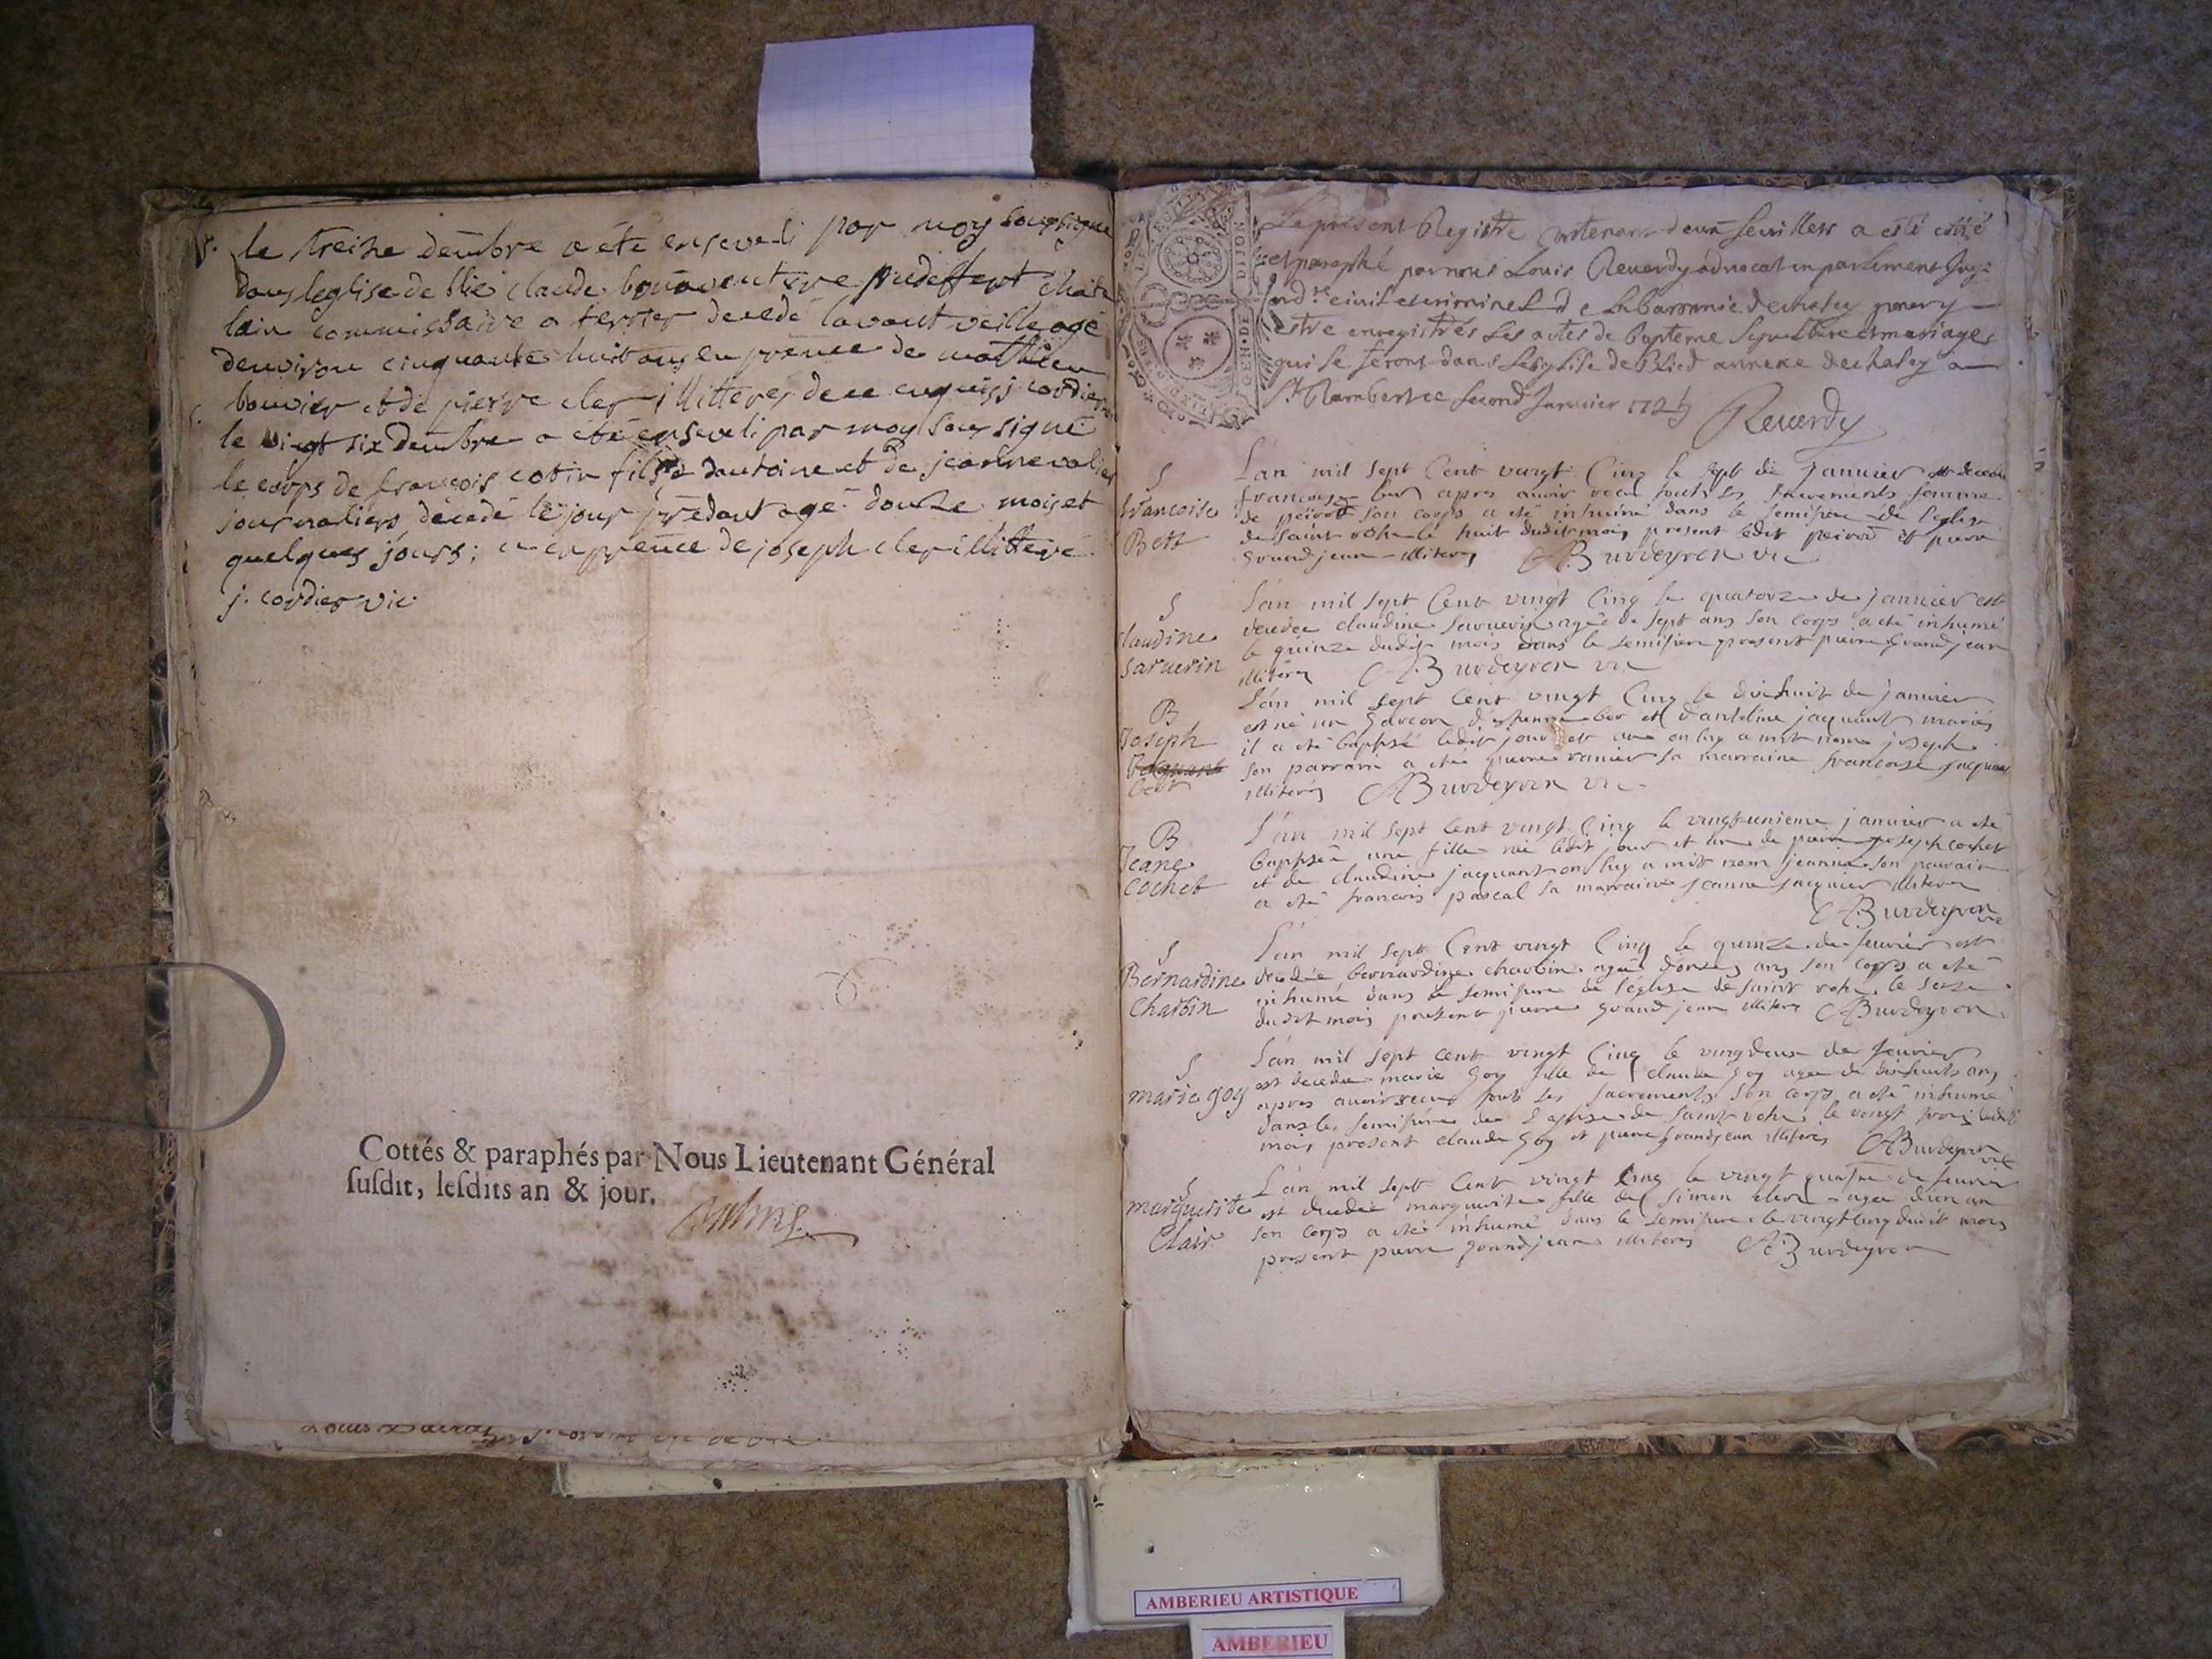 S. le treize decembre a été enseveli par moy soussigné
dans leglise de blié claude bonaventure prudessert chate
lain commissaire a terrier decedé lavant veille agé
denviron cinquante huit ans en presence de mathieu
bouvier et de pierre cler illitterés de ce enquis j cordier
S. le vingt six decembre a été enseveli par moy sous signé
le corps de françois cotin fils dantoine et de jeanne
journaliers décédé le jour précédant agé douze mois et
quelques jours; en presence de joseph cler illitteré
j. cordier vic
Cottés & paraphés par Nous Lieutenant Général
susdit, lesdits an & jour.
Le present Registre contenant feuillets a esté cotté
et paraphé par nous Louis Reverdy advocat en parlement Juge
ord.re civil et criminel de la baronnie de chaley pour y
estre enregistrés les actes de bapteme sepulture et mariages
qui se feront dans leglise de Blied annexe de chaley a
St Rambert ce second Janvier 1725
Reverdy
DIJON
S
francoise
Bett
L'an mil sept Cent vingt Cinq le sept de Janvier est decedée
francoise apres avoir receu touts les sacrements femme
de son corps a eté inhumé dans le semitiere de l'eglise
de saint le huit dudit mois present ledit et pierre
grandjean illiteres ABurdeyron vic
S
claudine
Saruerin
L'an mil sept Cent vingt Cinq le quatorze de janvier est
decedee claudine saruerin agée de sept ans son corps a eté inhumé
le quinze dudit mois dans le semitiere present pierre grandjean
illiteres ABurdeyron vic
B
Joseph
Bett
L'an mil sept Cent vingt Cinq le dixhuit de janvier
est né un garcon d'estienne et d'anteline jaquant mariés
il a eté baptisé ledit jour et an on luy a mit nom joseph
son parrain a eté pierre ranier sa marraine francoise
illiteres ABurdeyron vic
B
Jeane
Cochet
L'an mil sept Cent vingt Cinq le vingtunieme janvier a eté
baptisée une fille née ledit jour et an de pierre joseph cochet
et de claudine jaquant on luy a mit nom jeanne son parrain
a eté francois pascal sa marraine jeanne jaquier illiteres
ABurdeyron vic
S
Bernardine
Charbin
L'an mil sept Cent vingt Cinq le quinze de fevrier est
decedée bernardine charbin agée d'onze ans son corps a eté
inhumé dans le semitiere de l'eglise de saint le seize
dudit mois present pierre grandjean illiteres ABurdeyron
S
marie goy
L'an mil sept cent vingt Cinq le vingdeux de fevrier
est decedee marie goy fille de claude goy agee de dixhuits ans
apres avoir receu touts les sacrements son corps a eté inhumé
dans le semitiere de l eglise de saint le vingt trois dudit
mois present claude goy et pierre grandjean illiteres ABurdeyron vic
S
marguerite
Clair
L'an mil sept Cent vingt Cinq le vingt quatre de fevrier
est decedée marguerite fille de simon agee d'un an
son corps a eté inhumé dans le semitiere le vingtcinq dudit mois
present pierre grandjean illiteres ABurdeyron
AMBERIEU ARTISTIQUE
AMBERIEU